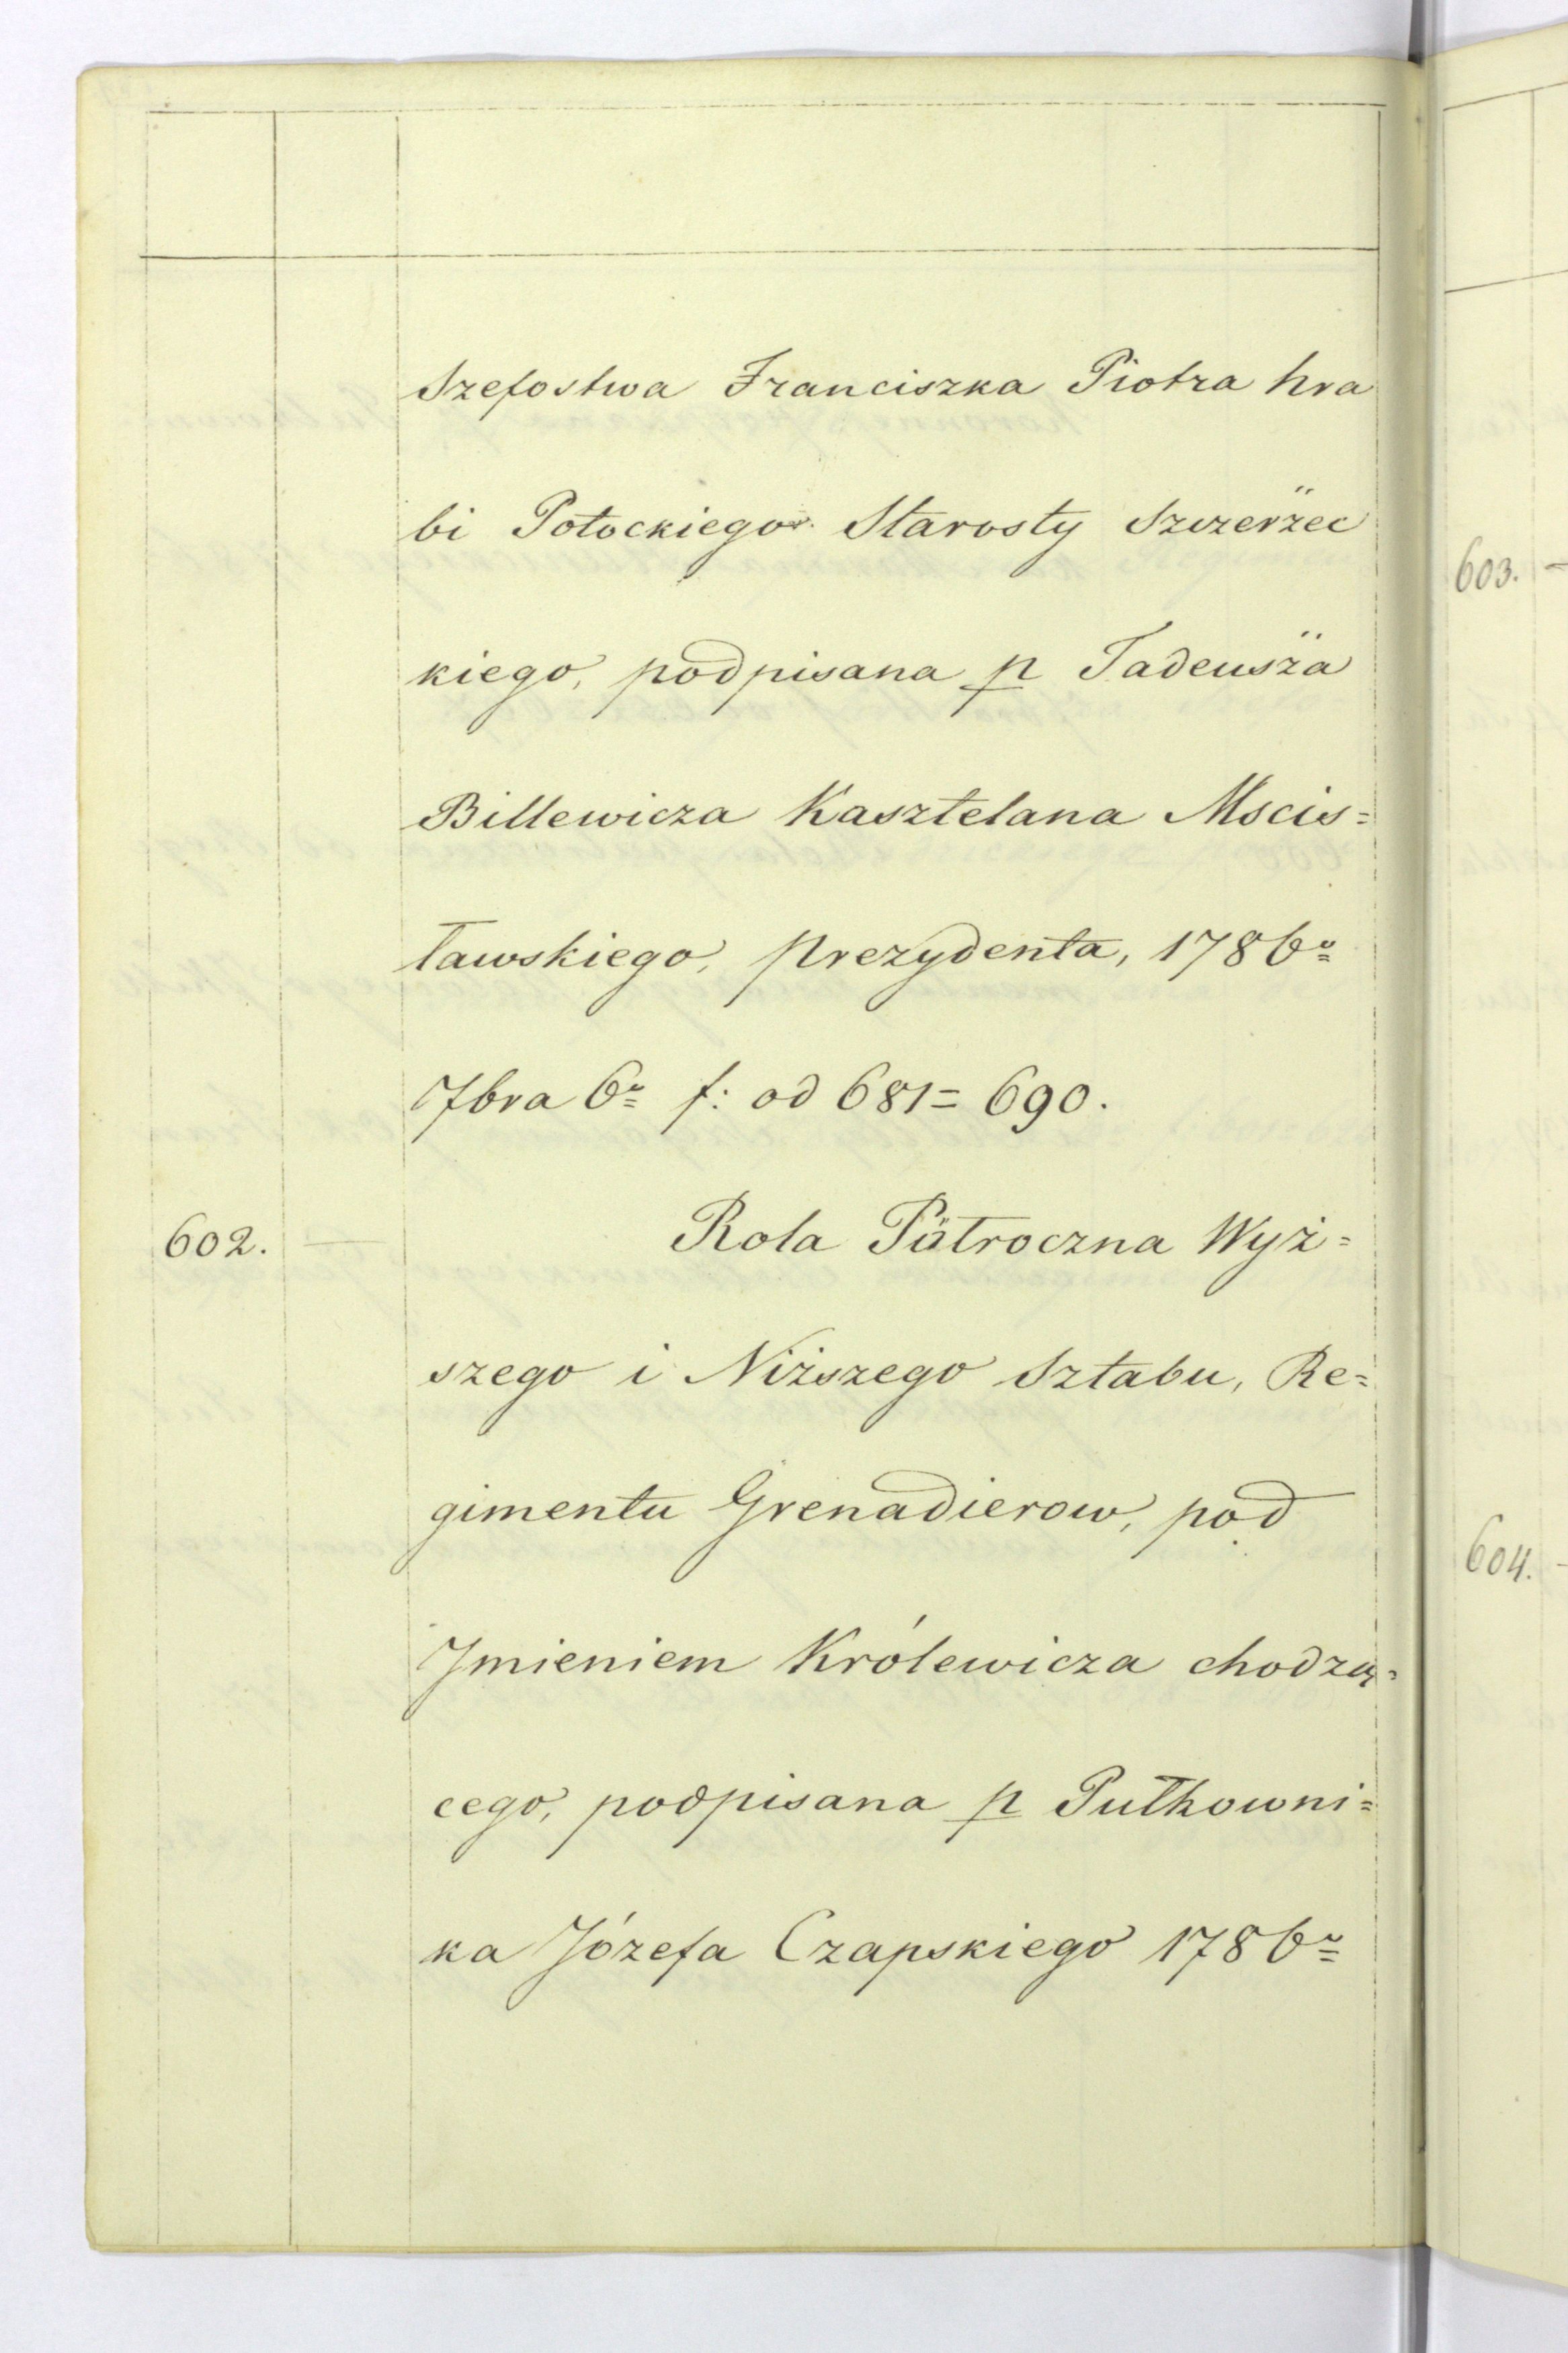 Szefostwa Franciszka Piotra hra
bi Potockiego Starosty Szczerzec
kiego, podpisana p Tadeusza
Billewicza Kasztelana Mscis=
ławskiego, Prezydenta, 1786º
7bra 6º f: od 681=690.
602. — Rola Pułroczna Wyż=
szego i Niższego Sztabu, Re=
gimentu Grenadierow, pod
Jmieniem Królewicza chodzą=
cego, podpisana p Pułkowni=
ka Józefa Czapskiego 1786º
603. —
604. —